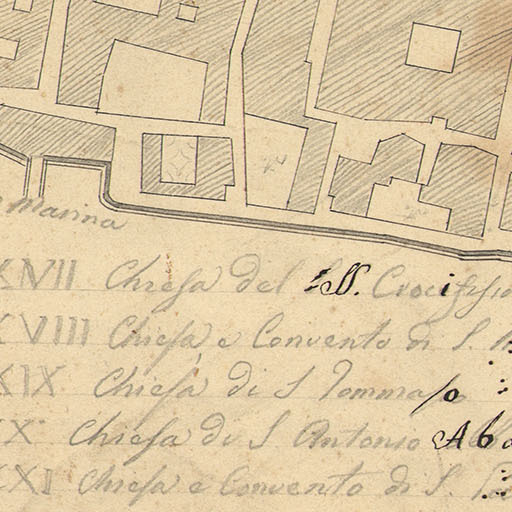 Marina
XVII Chiesa del SS. Crocifisso
XVIII Chiesa e Convento di S.
XIX Chiesa di S Tommaso
XX Chiesa di S Antonio Ab
XXI Chiesa e Convento di S.